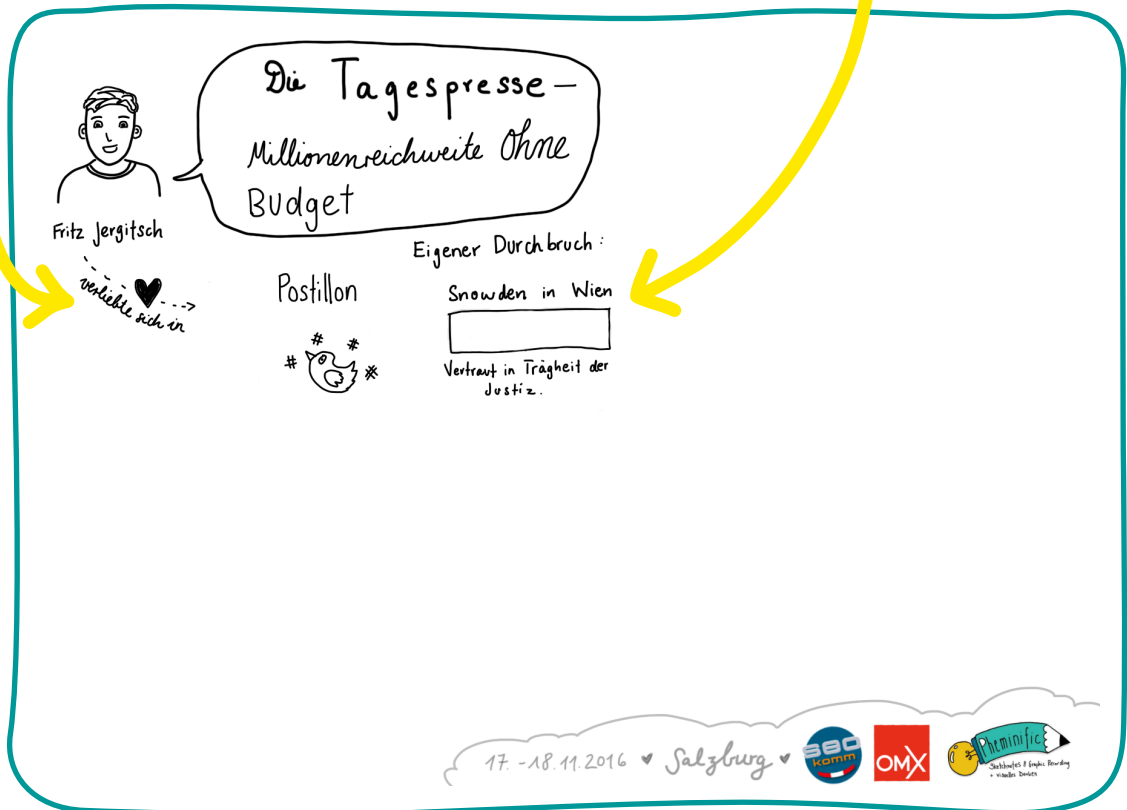 Die Tagespresse –
Millionenreichweite Ohne
Budget
Fritz Jergitsch
verliebte sich in
Postillon
# # # #
Eigener Durchbruch:
Snowden in Wien
Vertraut in Trägheit der
Justiz.
17. - 18. 11. 2016 ♥ Salzburg ♥
SEO
komm
OMX
Pheminific
Sketchnotes & Graphic Recording
+ visuelles Denken